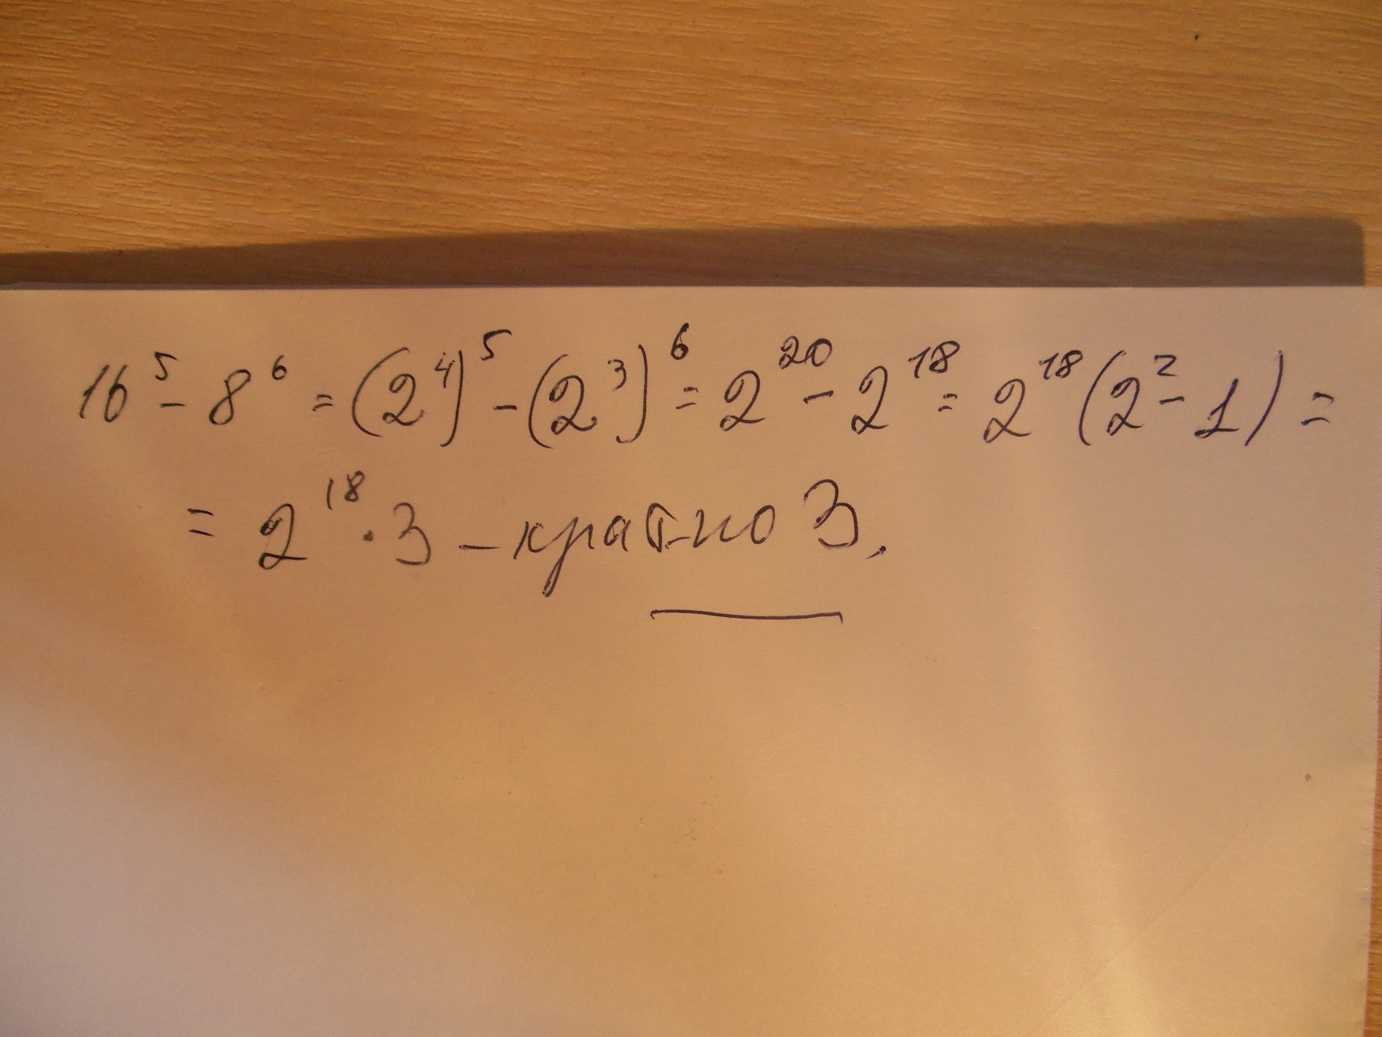 16⁵ - 8⁶ = (2⁴)⁵ - (2³)⁶ = 2²⁰ - 2¹⁸ = 2¹⁸(2² - 1) =
= 2¹⁸ · 3 – кратно 3.